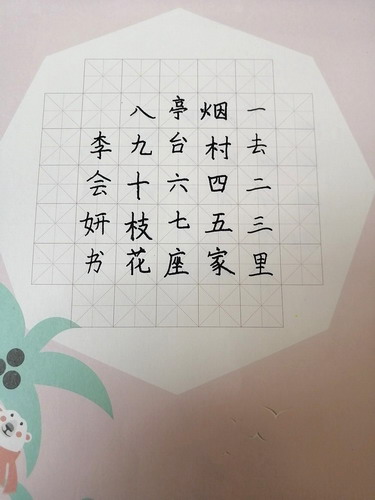 一去二三里
烟村四五家
亭台六七座
八九十枝花
李会妍书